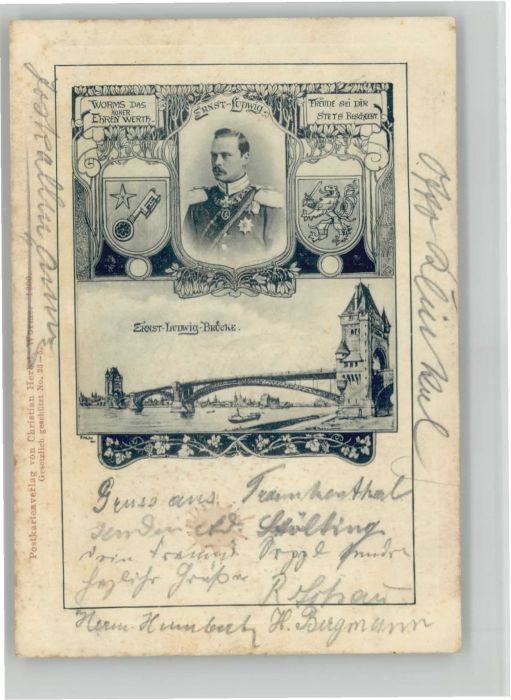 WORMS DAS
HOHER
EHREN WERTH.
ERNST-LUDWIG.
FREUDE SEI DIR
STETS BESCHEERT.
ERNST-LUDWIG-BRÜCKE.
Postkartenverlag von Christian Herbst Worms 1900.
Gesetzlich geschützt No. 23
Gruss aus Frankenthal
senden Stölting
dein Freund Seppl
herzliche Grüße
R. Schau
Herm. Humbert, H. Bergmann